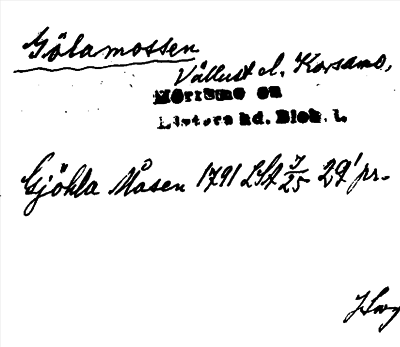 Gölamossen
Vällust o. Korsamo,
Mörrums sn
Listers hd. Blek. l.
Gjöhla Måsen 1791 LSA 7/25 29' pr.